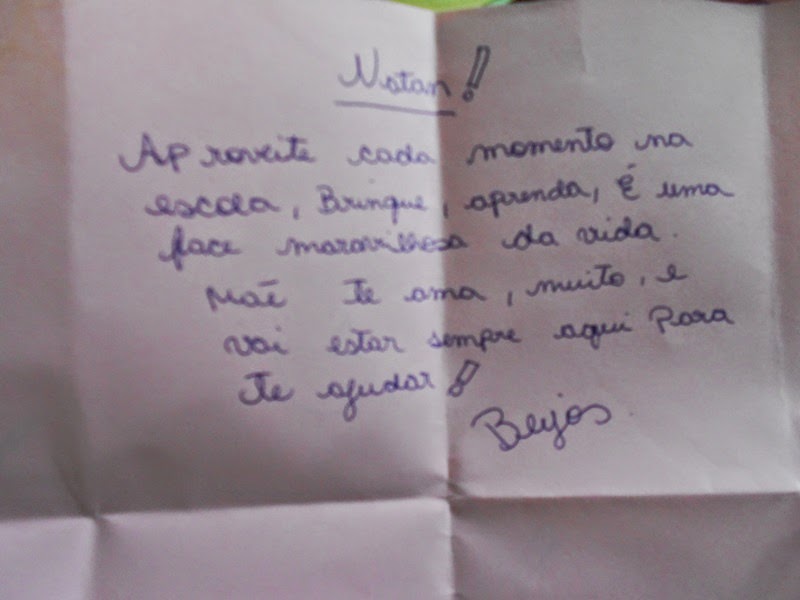 Natan!
Aproveite cada momento na
escola, Brinque, aprenda, É uma
face maravilhosa da vida.
Mãe te ama, muito, e
vai estar sempre aqui Para
te ajudar!
Beijos